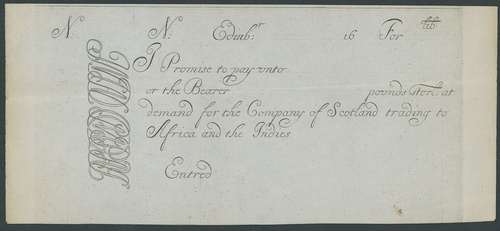 N. N: Edinbr. 16 For lib
I Promise to pay unto
or the Bearer pounds Sterl: at
demand for the Company of Scotland trading to
Africa and the Indies
Entred